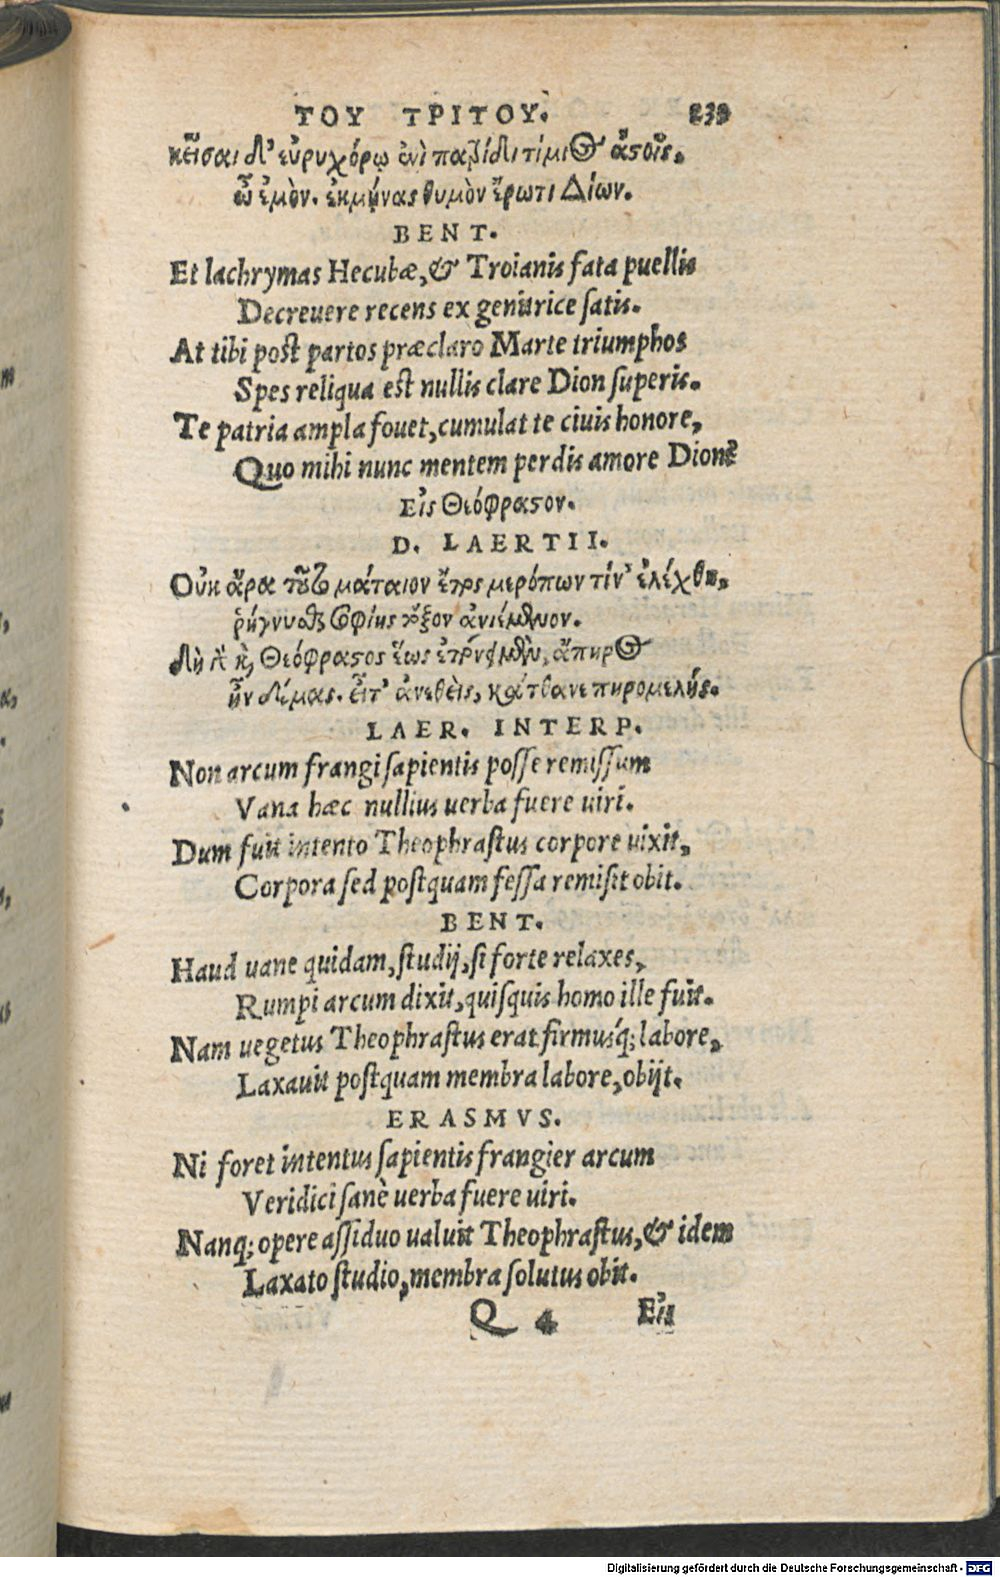 ΤΟΥ ΤΡΙΤΟΥ. 239
κεῖσαι δ' εὐρυχόρῳ ἐνὶ πατρίδι τίμιος ἀστοῖς.
ὦ ἐμὸν. ἐκμήνας θυμὸν ἔρωτι Δίων.
BENT.
Et lachrymas Hecubæ, & Troianis fata puellis
Decreuere recens ex genitrice satis.
At tibi post partos præclaro Marte triumphos
Spes reliqua est nullis clare Dion superis.
Te patria ampla fouet, cumulat te ciuis honore,
Quo mihi nunc mentem perdis amore Dion?
Εἰς Θεόφραστον.
D. LAERTII.
Οὐκ ἄρα τοῦτο μάταιον ἔπος μερόπων τίν' ἐλέχθη,
ῥήγνυσθαι σοφίης τόξον ἀνιέμενον.
δὴ γὰρ καὶ Θεόφραστος ἕως ἐπόνει μὲν, ἄπηρος
ἦν δέμας. εἶτ' ἀνεθεὶς, κάτθανε πηρομελής.
LAER. INTERP.
Non arcum frangi sapientis posse remissum
Vana hæc nullius uerba fuere uiri.
Dum fuit intento Theophrastus corpore uixit,
Corpora sed postquam fessa remisit obit.
BENT.
Haud uane quidam, studij, si forte relaxes,
Rumpi arcum dixit, quisquis homo ille fuit.
Nam uegetus Theophrastus erat firmusq́; labore,
Laxauit postquam membra labore, obijt.
ERASMVS.
Ni foret intentus sapientis frangier arcum
Veridici sanè uerba fuere uiri.
Nanq; opere assiduo ualuit Theophrastus, & idem
Laxato studio, membra solutus obit.
Q 4 Εἰς
Digitalisierung gefördert durch die Deutsche Forschungsgemeinschaft - DFG